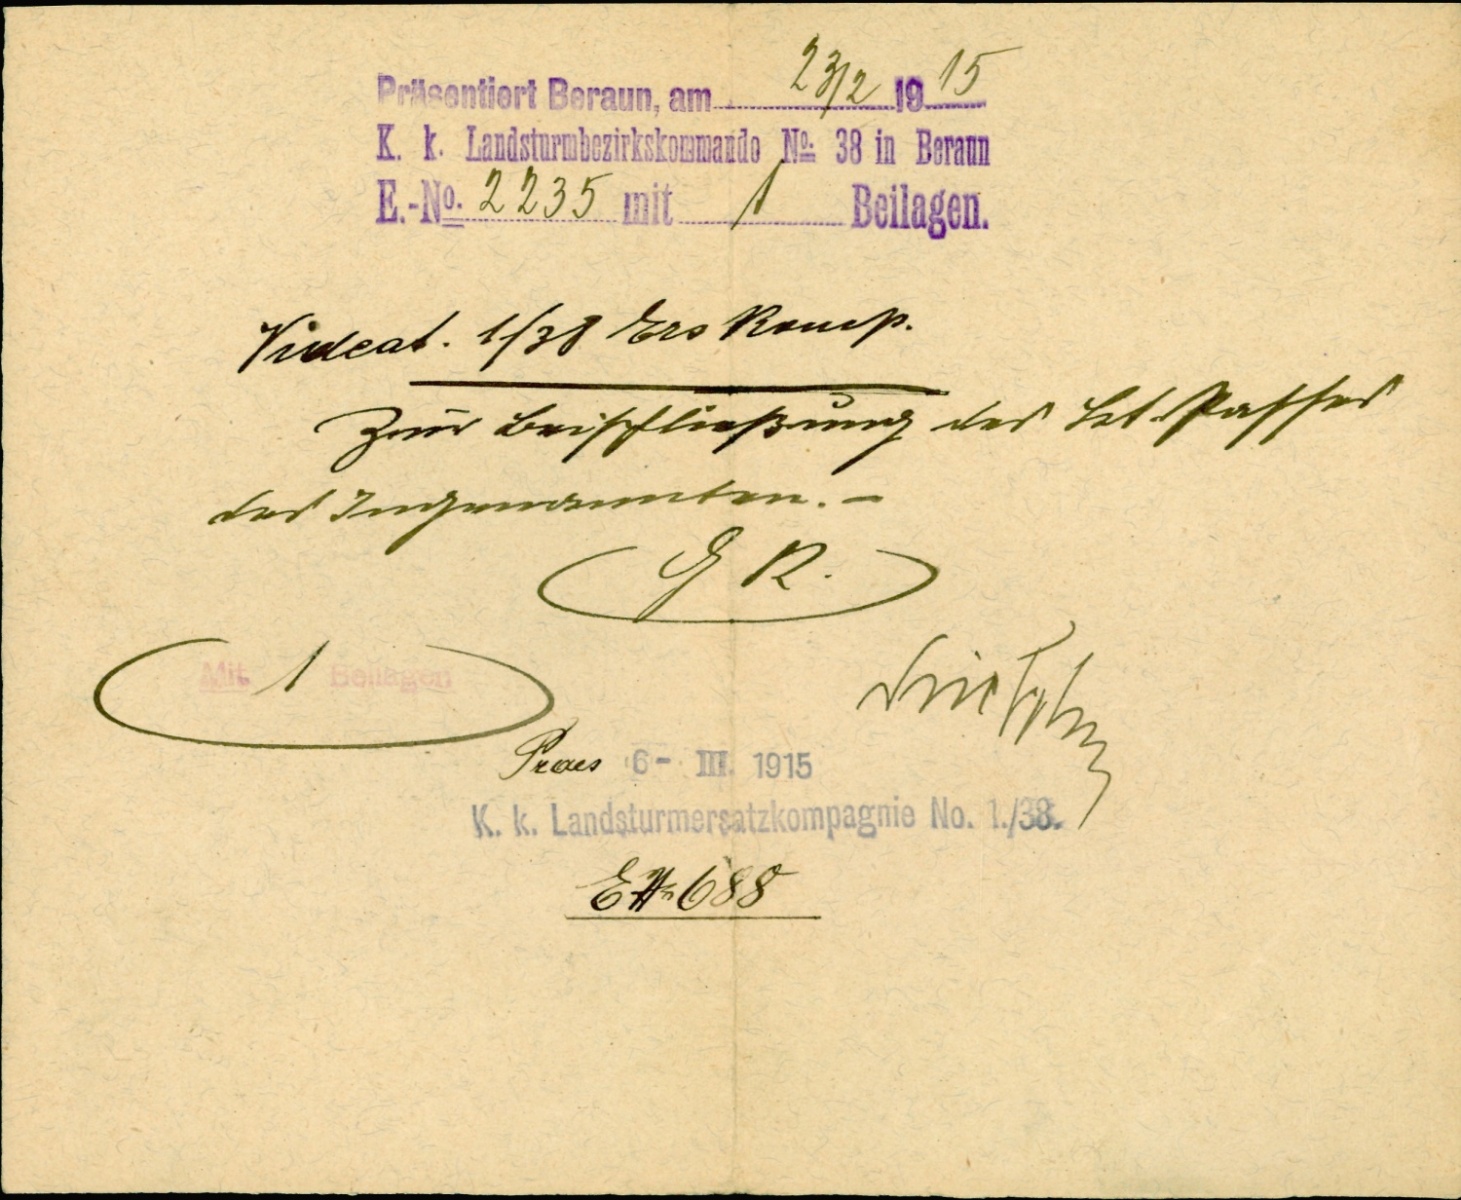 Präsentiert Beraun, am 23/2 1915
K. k. Landsturmbezirkskommando No. 38 in Beraun
E.-No. 2235 mit 1 Beilagen.
Videat. 1/38 Ers Komp.
Zur Beischließung des Lst. Passes
des Ingenannten. –
G R.
Mit 1 Beilagen
Praes 6 - III. 1915
K. k. Landsturmersatzkompagnie No. 1./38.
E No 688